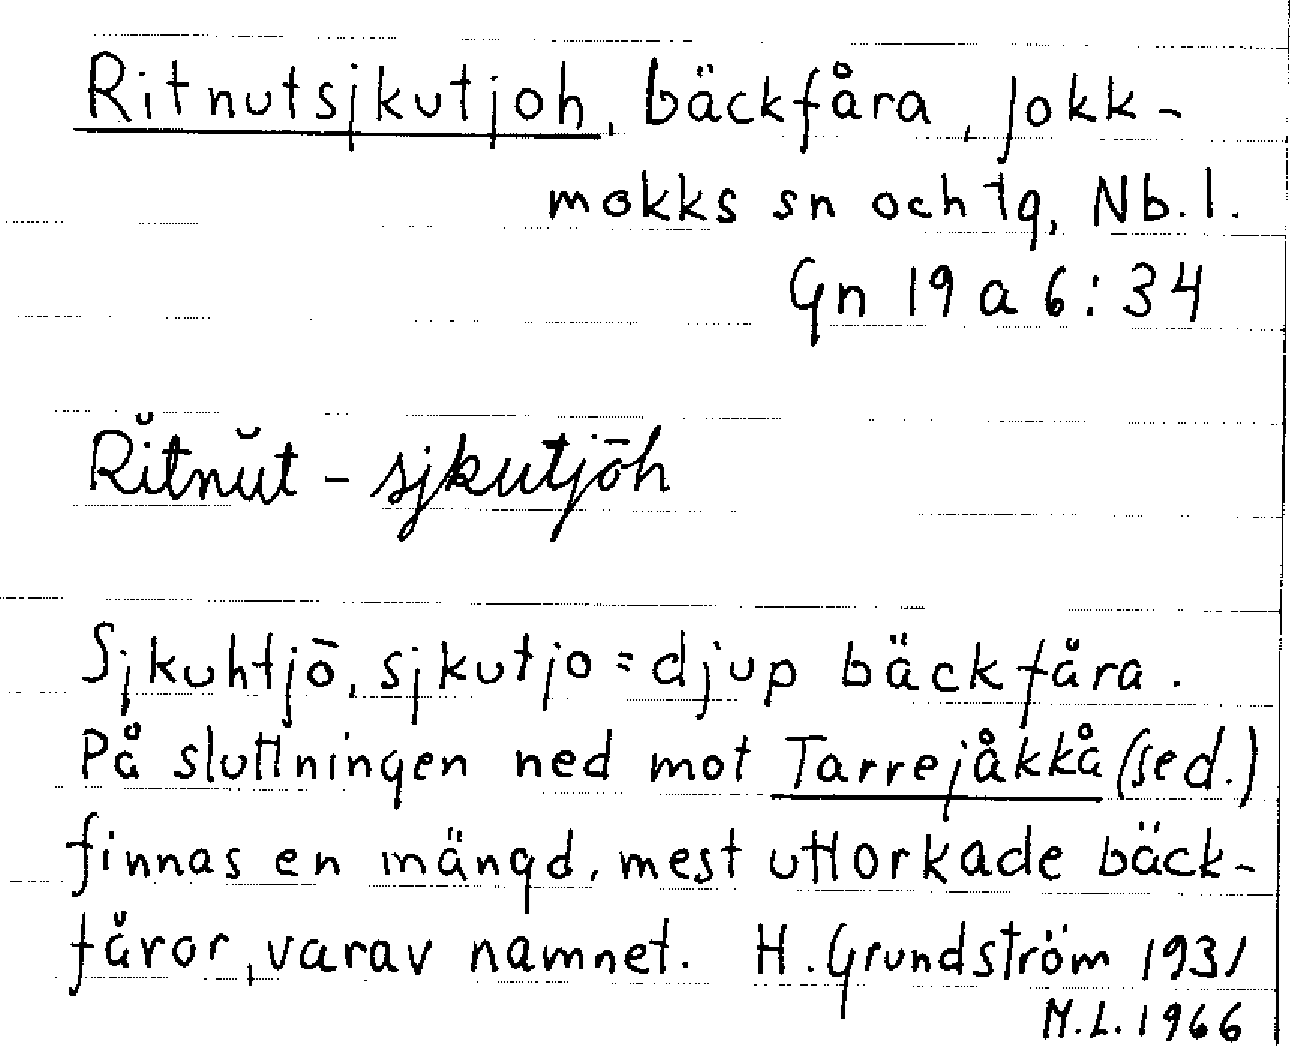 Ritnutsjkutjoh, bäckfåra, Jokk-
mokks sn och tg, Nb.l.
Gn 19 a 6:34
Rĭtnŭt - sjkutjōh
Sjkuhtjō, sjkutjo = djup bäckfåra.
På sluttningen ned mot Tarrejåkkå (sed.)
finnas en mängd, mest uttorkade bäck-
fåror, varav namnet. H. Grundström 1931
M.L. 1966